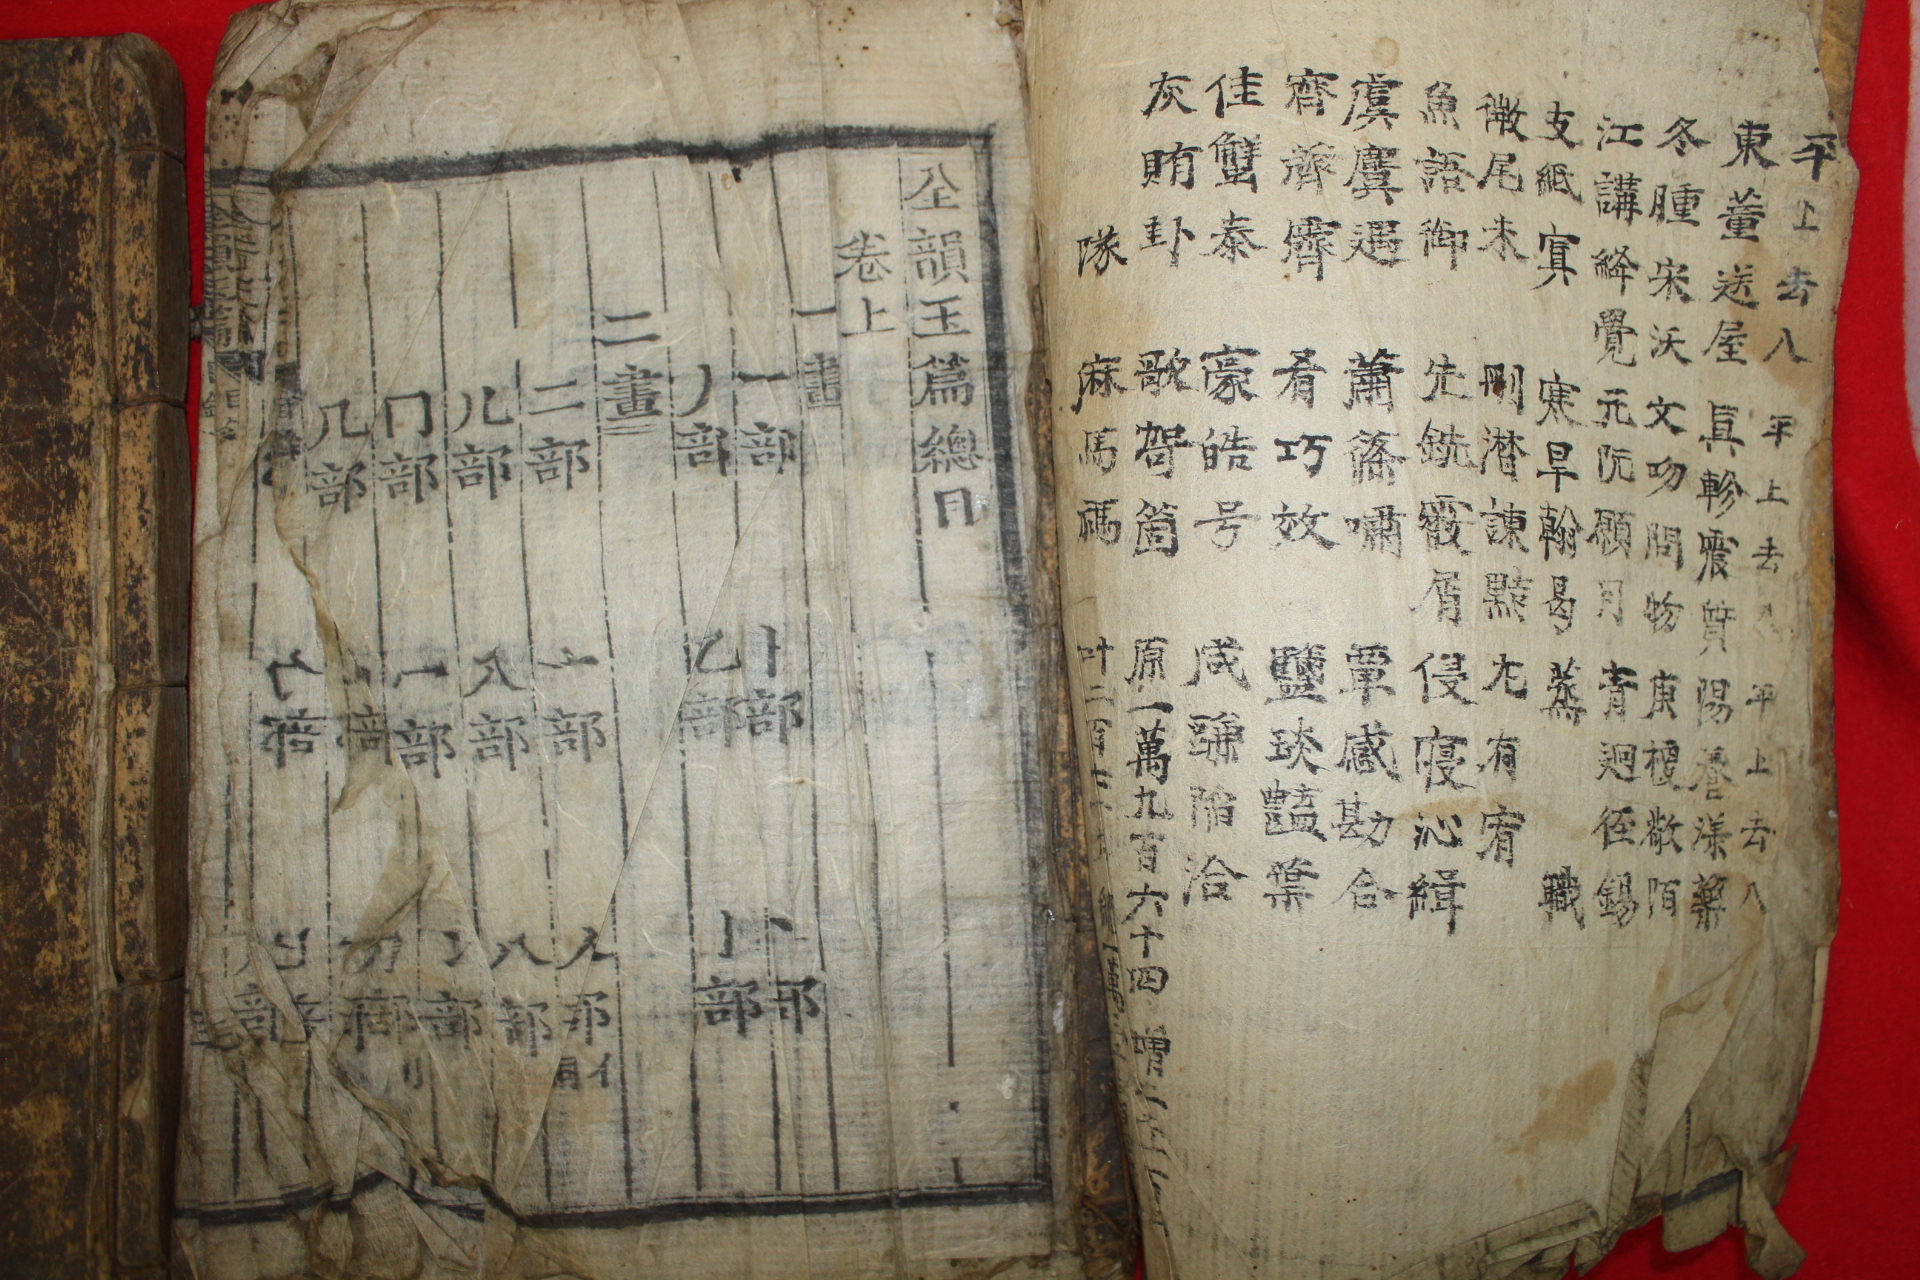 平上去入 平上去入 平上去入
東董送屋 真軫震質 陽養漾藥
冬腫宋沃 文吻問物 庚梗敬陌
江講絳覺 元阮願月 青逈径錫
支紙寘 寒旱翰曷 蒸 職
微尾未 刪潸諫黠 尤有宥
魚語御 先銑霰屑 侵寑沁緝
虞麌遇 蕭篠嘯 覃感勘合
齊薺霽 肴巧效 鹽琰豔葉
佳蟹泰 豪皓号 咸豏陷洽
灰賄卦 歌哿箇 原一萬九百六十四 增
隊 麻馬禡 叶二百
全韻玉篇總目
卷上
一畫
一部 丨部 丶部
丿部 乙部 亅部
二畫
二部 亠部 人部亻同
儿部 入部 八部
冂部 冖部 冫部
几部 部 刀部刂
勹部 部